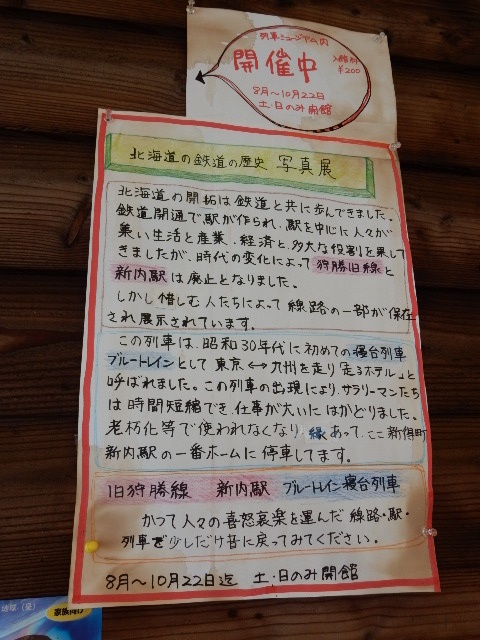 列車ミュージアム内
開催中
入館料
¥200
8月〜10月22日
土・日のみ開館
北海道の鉄道の歴史 写真展
北海道の開拓は鉄道と共に歩んできました。
鉄道開通で駅が作られ、駅を中心に人々が
集い生活と産業、経済と、多大な役割を果して
きましたが、時代の変化によって狩勝旧線と
新内駅は廃止となりました。
しかし惜しむ人たちによって線路の一部が保存
され展示されています。
この列車は、昭和30年代に初めての寝台列車
ブルートレインとして東京↔九州を走り「走るホテル」と
呼ばれました。この列車の出現により、サラリーマンたち
は時間短縮でき、仕事が大いにはかどりました。
老朽化等で使われなくなり 縁あって、ここ新得町
新内駅の一番ホームに停車してます。
旧狩勝線 新内駅 ブルートレイン寝台列車
かつて人々の喜怒哀楽を運んだ線路・駅・
列車で少しだけ昔に戻ってみてください。
8月〜10月22日迄 土・日のみ開館
家族向け